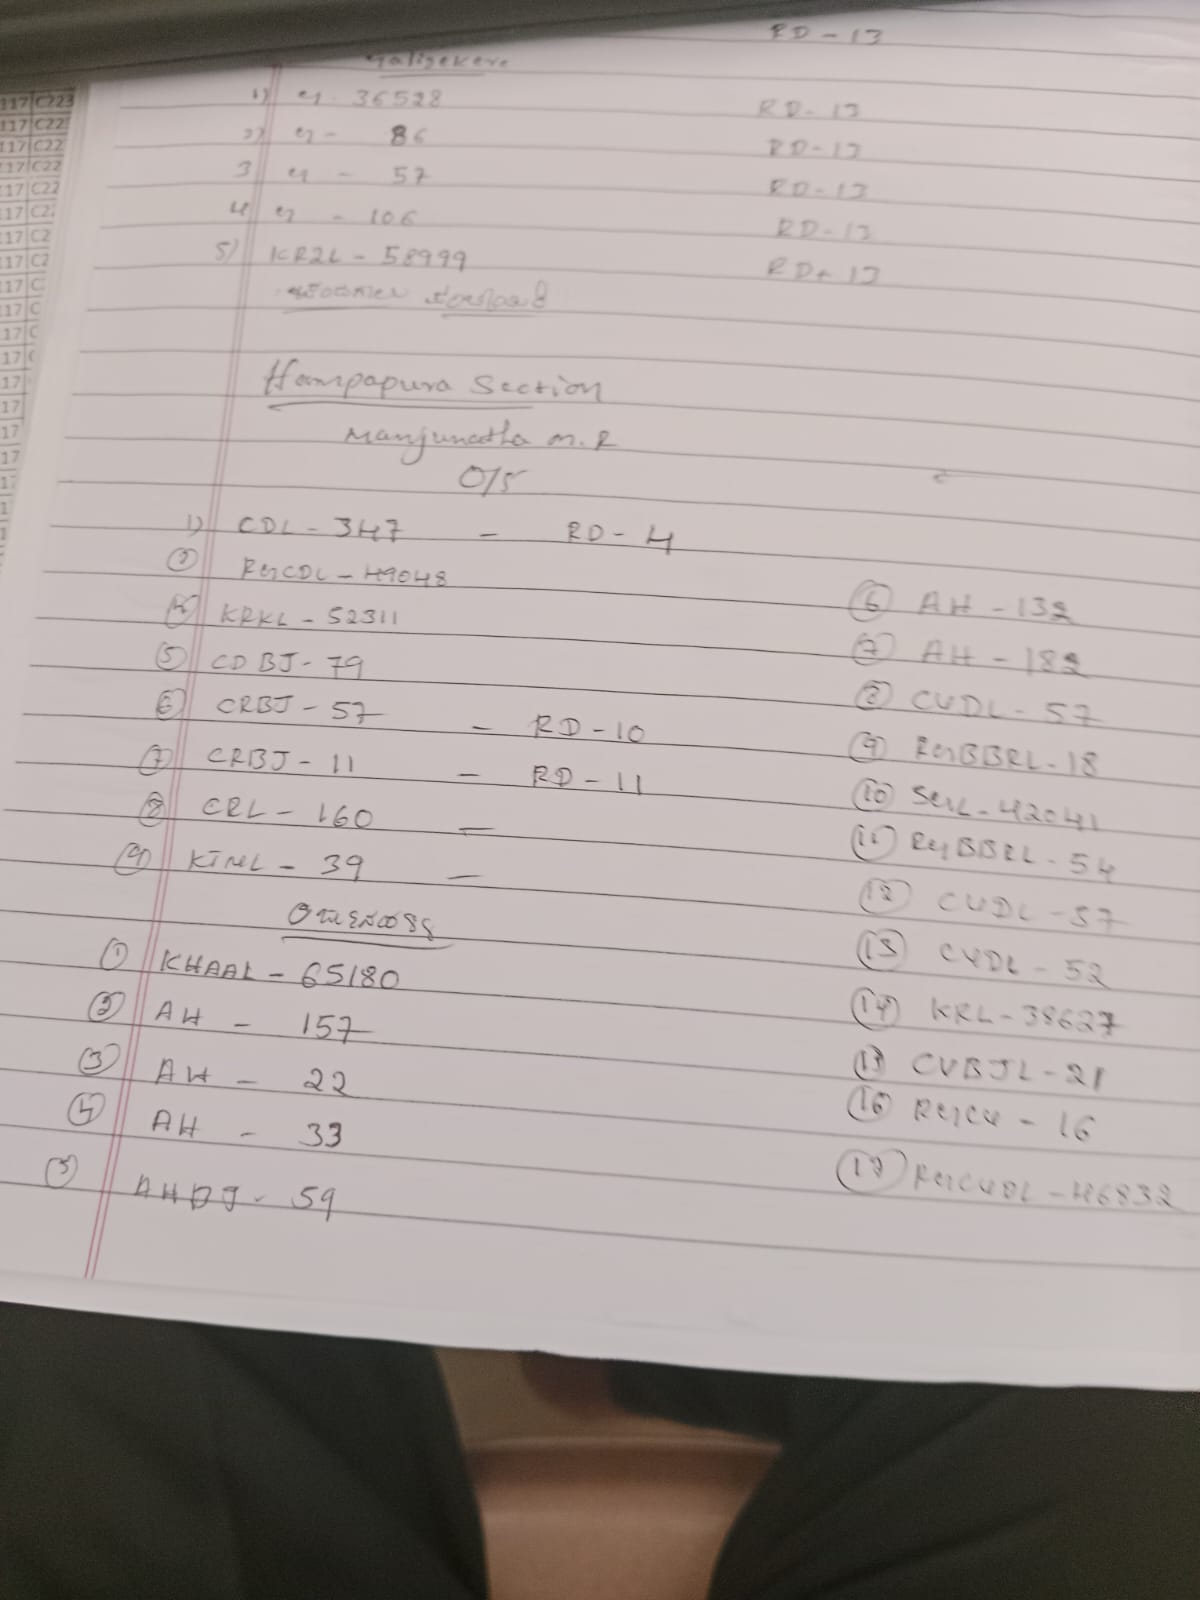 RD - 13
Galigekere
1) ey. 36528 RD - 13
2) ey - 86 RD - 13
3 ey - 57 RD - 13
4 ey - 106 RD - 13
5) KR2L - 58999 RD - 13
Hampapura Section
Manjunatha M.R
O/S
1) CDL - 347 - RD - 4
② ReyCDL - 49048
KRKL - 52311
⑤ CDBJ - 79
⑥ CRBJ - 57 - RD - 10
⑦ CRBJ - 11 - RD - 11
⑧ CRL - 160 -
⑨ - 39 -
① KHAAL - 65180
② AH - 157
③ AH - 22
④ AH - 33
⑤ AHDJ - 59
⑥ AH - 132
⑦ AH - 182
⑧ CUDL - 57
⑨ ReyBBRL - 18
⑩ - 42041
⑪ ReyBBRL - 54
⑫ CUDL - 57
⑬ CVDL - 52
⑭ KRL - 38627
CVBJL - 21
⑯ - 16
⑰ ReyCUDL - 46832
117 C223
117 C22
117 C22
117 C22
117 C22